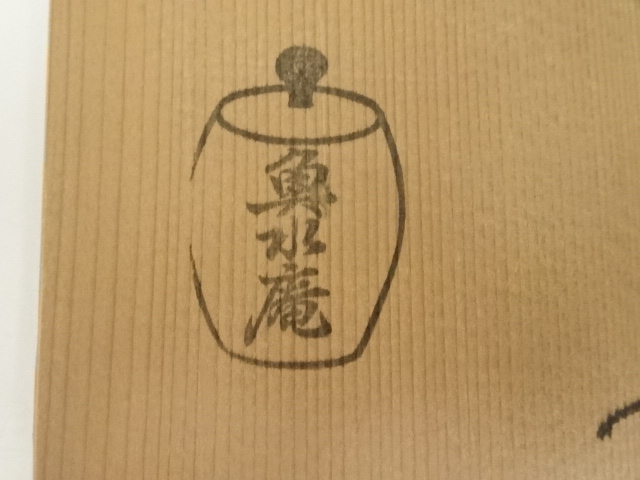 魚水庵